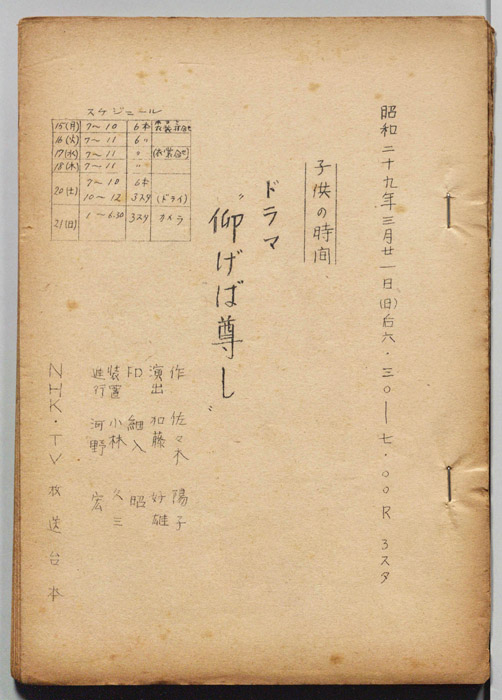 昭和二十九年三月廿一日(日)后六・三〇―七・〇〇R 3スタ
子供の時間
ドラマ
"仰げば尊し"
スケジュール
15(月) 7〜10 6本
16(火) 7〜11 6〃
17(水) 7〜11 〃
18(木) 7〜11 〃
20(土) 7〜10 6本
10〜12 3スタ (ドライ)
21(日) 1〜6.30 3スタ カメラ
作 佐々木 陽子
演出 加藤 好雄
FD 細入 昭
装置 小林 久三
進行 河野 宏
NHK・TV放送台本